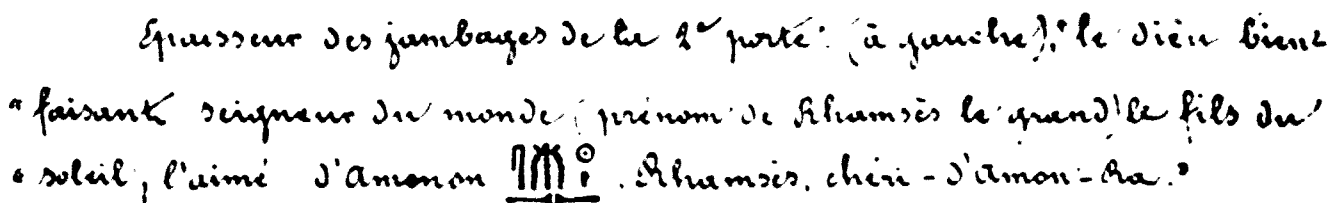 Epaisseur des jambages de la 2e porte (à gauche), "le dieu bien=
"faisant seigneur du monde (prénom de Rhamsès le grand) le fils du
"soleil, l'aimé d'Amonon . Rhamsès, chéri-d'Amon-Ra."